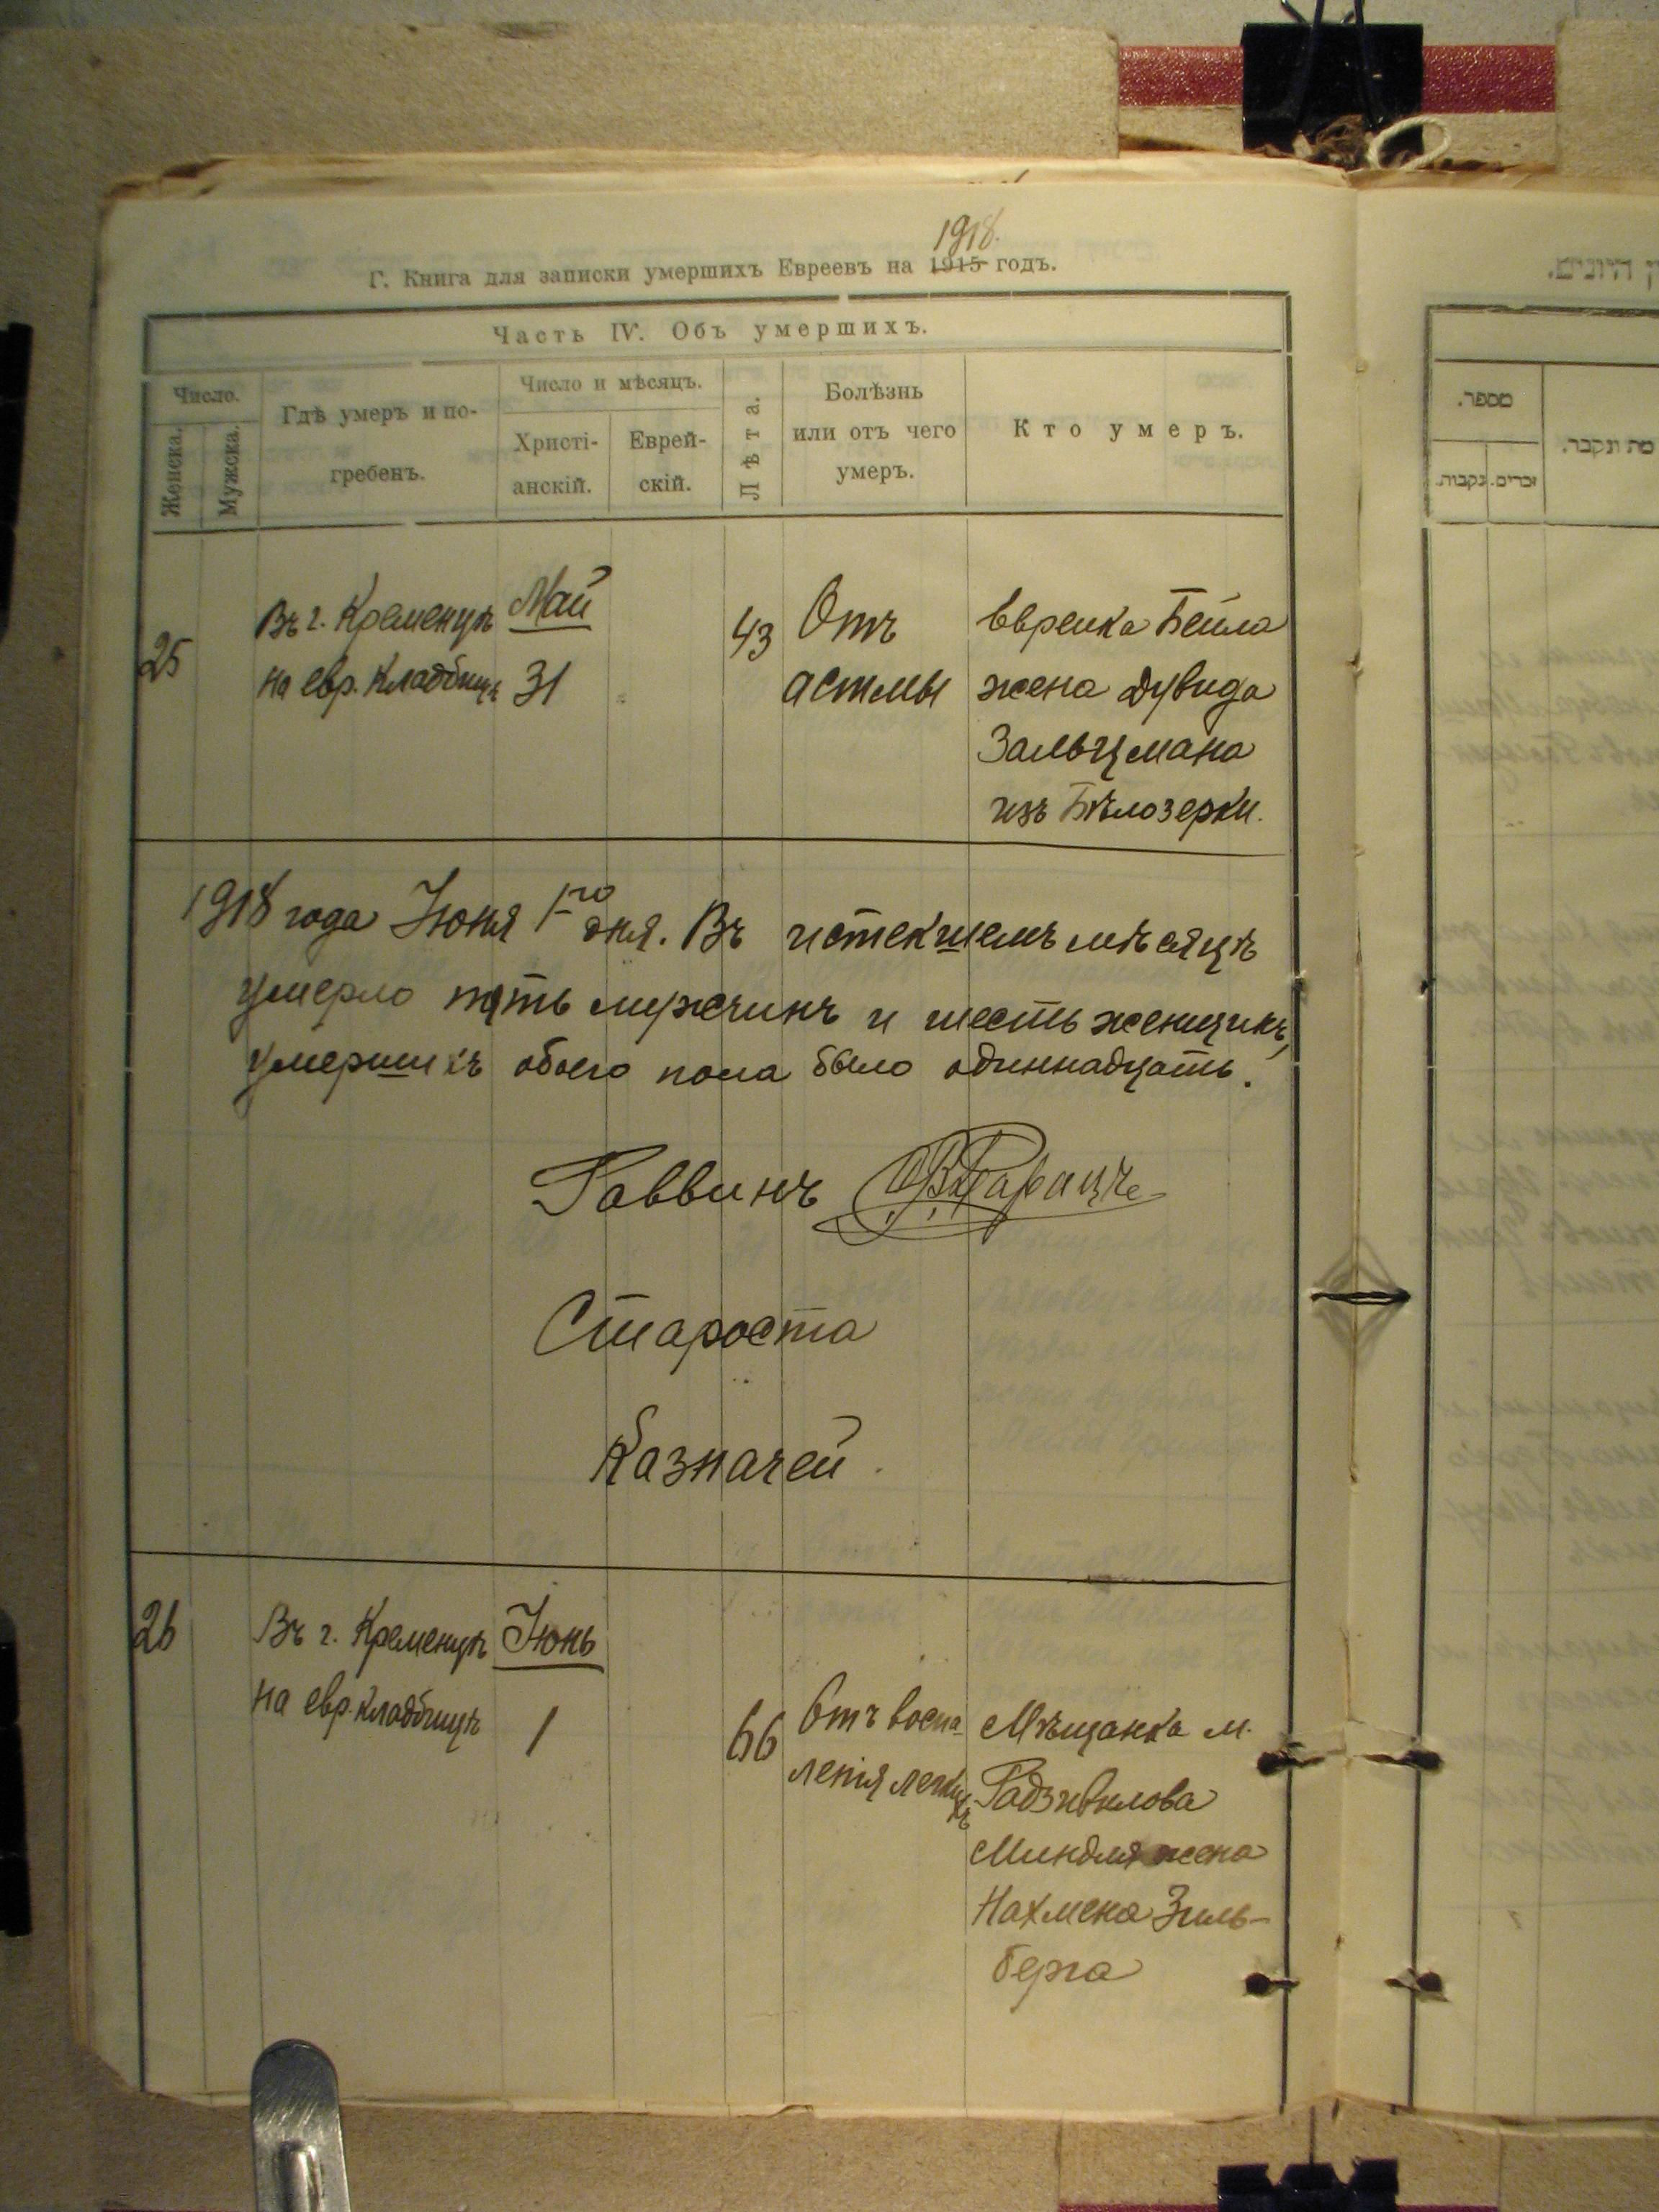 1918.
Г. Книга для записки умершихъ Евреевъ на 1915 годъ.
Часть IV. Объ умершихъ.
Число.
Женска.
Мужска.
Гдѣ умеръ и по-
гребенъ.
Число и мѣсяцъ.
Христі-
анскій.
Еврей-
скій.
Лѣта.
Болѣзнь
или отъ чего
умеръ.
Кто умеръ.
25
Въ г. Кременцѣ
на евр. кладбищѣ
Май
31
43
Отъ
астмы
Еврейка Бейла
жена Дувида
Зальцмана
изъ Бѣлозерки.
1918 года Іюня 1го дня. Въ истекшемъ мѣсяцѣ
умерло пять мужчинъ и шесть женщинъ,
умершихъ обоего пола было одиннадцать.
Раввинъ
Староста
Казначей.
26
Въ г. Кременцѣ
на евр. кладбищѣ
Іюнь
1
66
Отъ воспа-
ленія легкихъ
Мѣщанка м.
Радзивилова
Миндля жена
Нахмена Зиль-
берга
מספר.
זכרים.
נקבות.
מת ונקבר.